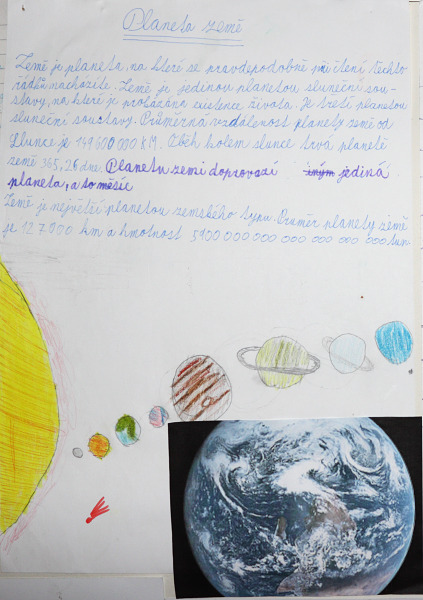 Planeta země
Země je planeta, na které se pravdepodobně při čtení těchto
řádků nacházíte. Země je jedinou planetou sluneční sou-
stavy, na které je prokázána existence života. Je třetí planetou
sluneční soustavy. Průměrná vzdálenost planety země od
Slunce je 149 600 000 KM. Oběh kolem slunce trvá planetě
země 365,26 dne. Planetu zemi doprovází jediná
planeta, a to měsíc
Země je největší planetou zemského typu. Průměr planety země
je 12 7000 km a hmotnost 5900 000 000 000 000 000 000 tun